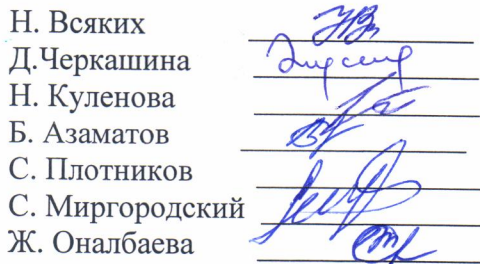 Н. Всяких
Д.Черкашина
Н. Куленова
Б. Азаматов
С. Плотников
С. Миргородский
Ж. Оналбаева